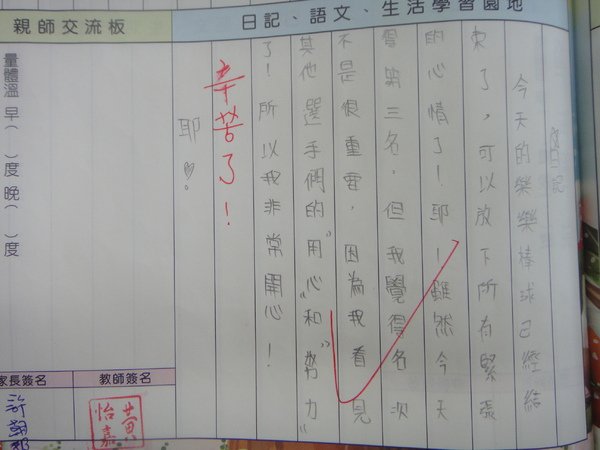 日記、語文、生活學習園地
日記
今天的樂樂棒球已經結
束了，可以放下所有緊張
的心情了！耶！雖然今天
得第三名，但我覺得名次
不是很重要，因為我看見
其他選手們的"用心"和"努力"
了！所以我非常開心！
辛苦了！
耶♡！
親師交流板
量體溫 早（　）度 晚（　）度
教師簽名
黃怡嘉
家長簽名
許